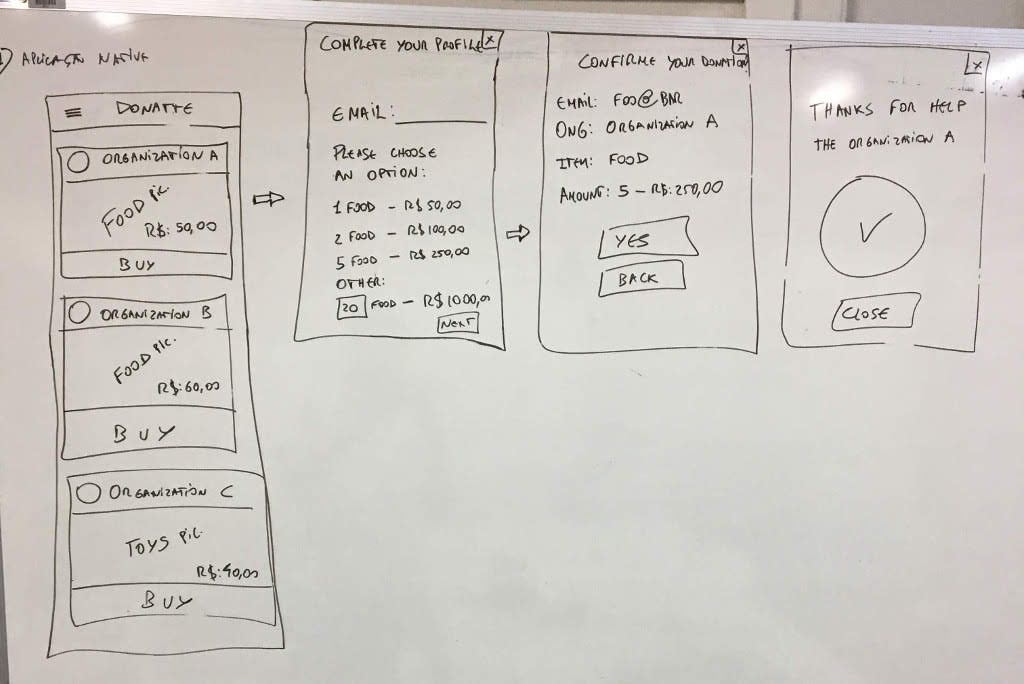 APLICAÇÃO NATIVE
DONATTE
ORGANIZATION A
FOOD PIC.
R$: 50,00
BUY
ORGANIZATION B
FOOD PIC.
R$:60,00
BUY
ORGANIZATION C
TOYS PIC.
R$:40,00
BUY
COMPLETE YOUR PROFILE X
EMAIL:
PLEASE CHOOSE
AN OPTION:
1 FOOD - R$ 50,00
2 FOOD - R$ 100,00
5 FOOD - R$ 250,00
OTHER:
20 FOOD - R$ 1000,00
NEXT
X
CONFIRME YOUR DONATION
EMAIL: FOO@BAR
ONG: ORGANIZATION A
ITEM: FOOD
AMOUNT: 5 - R$: 250,00
YES
BACK
X
THANKS FOR HELP
THE ORGANIZATION A
CLOSE